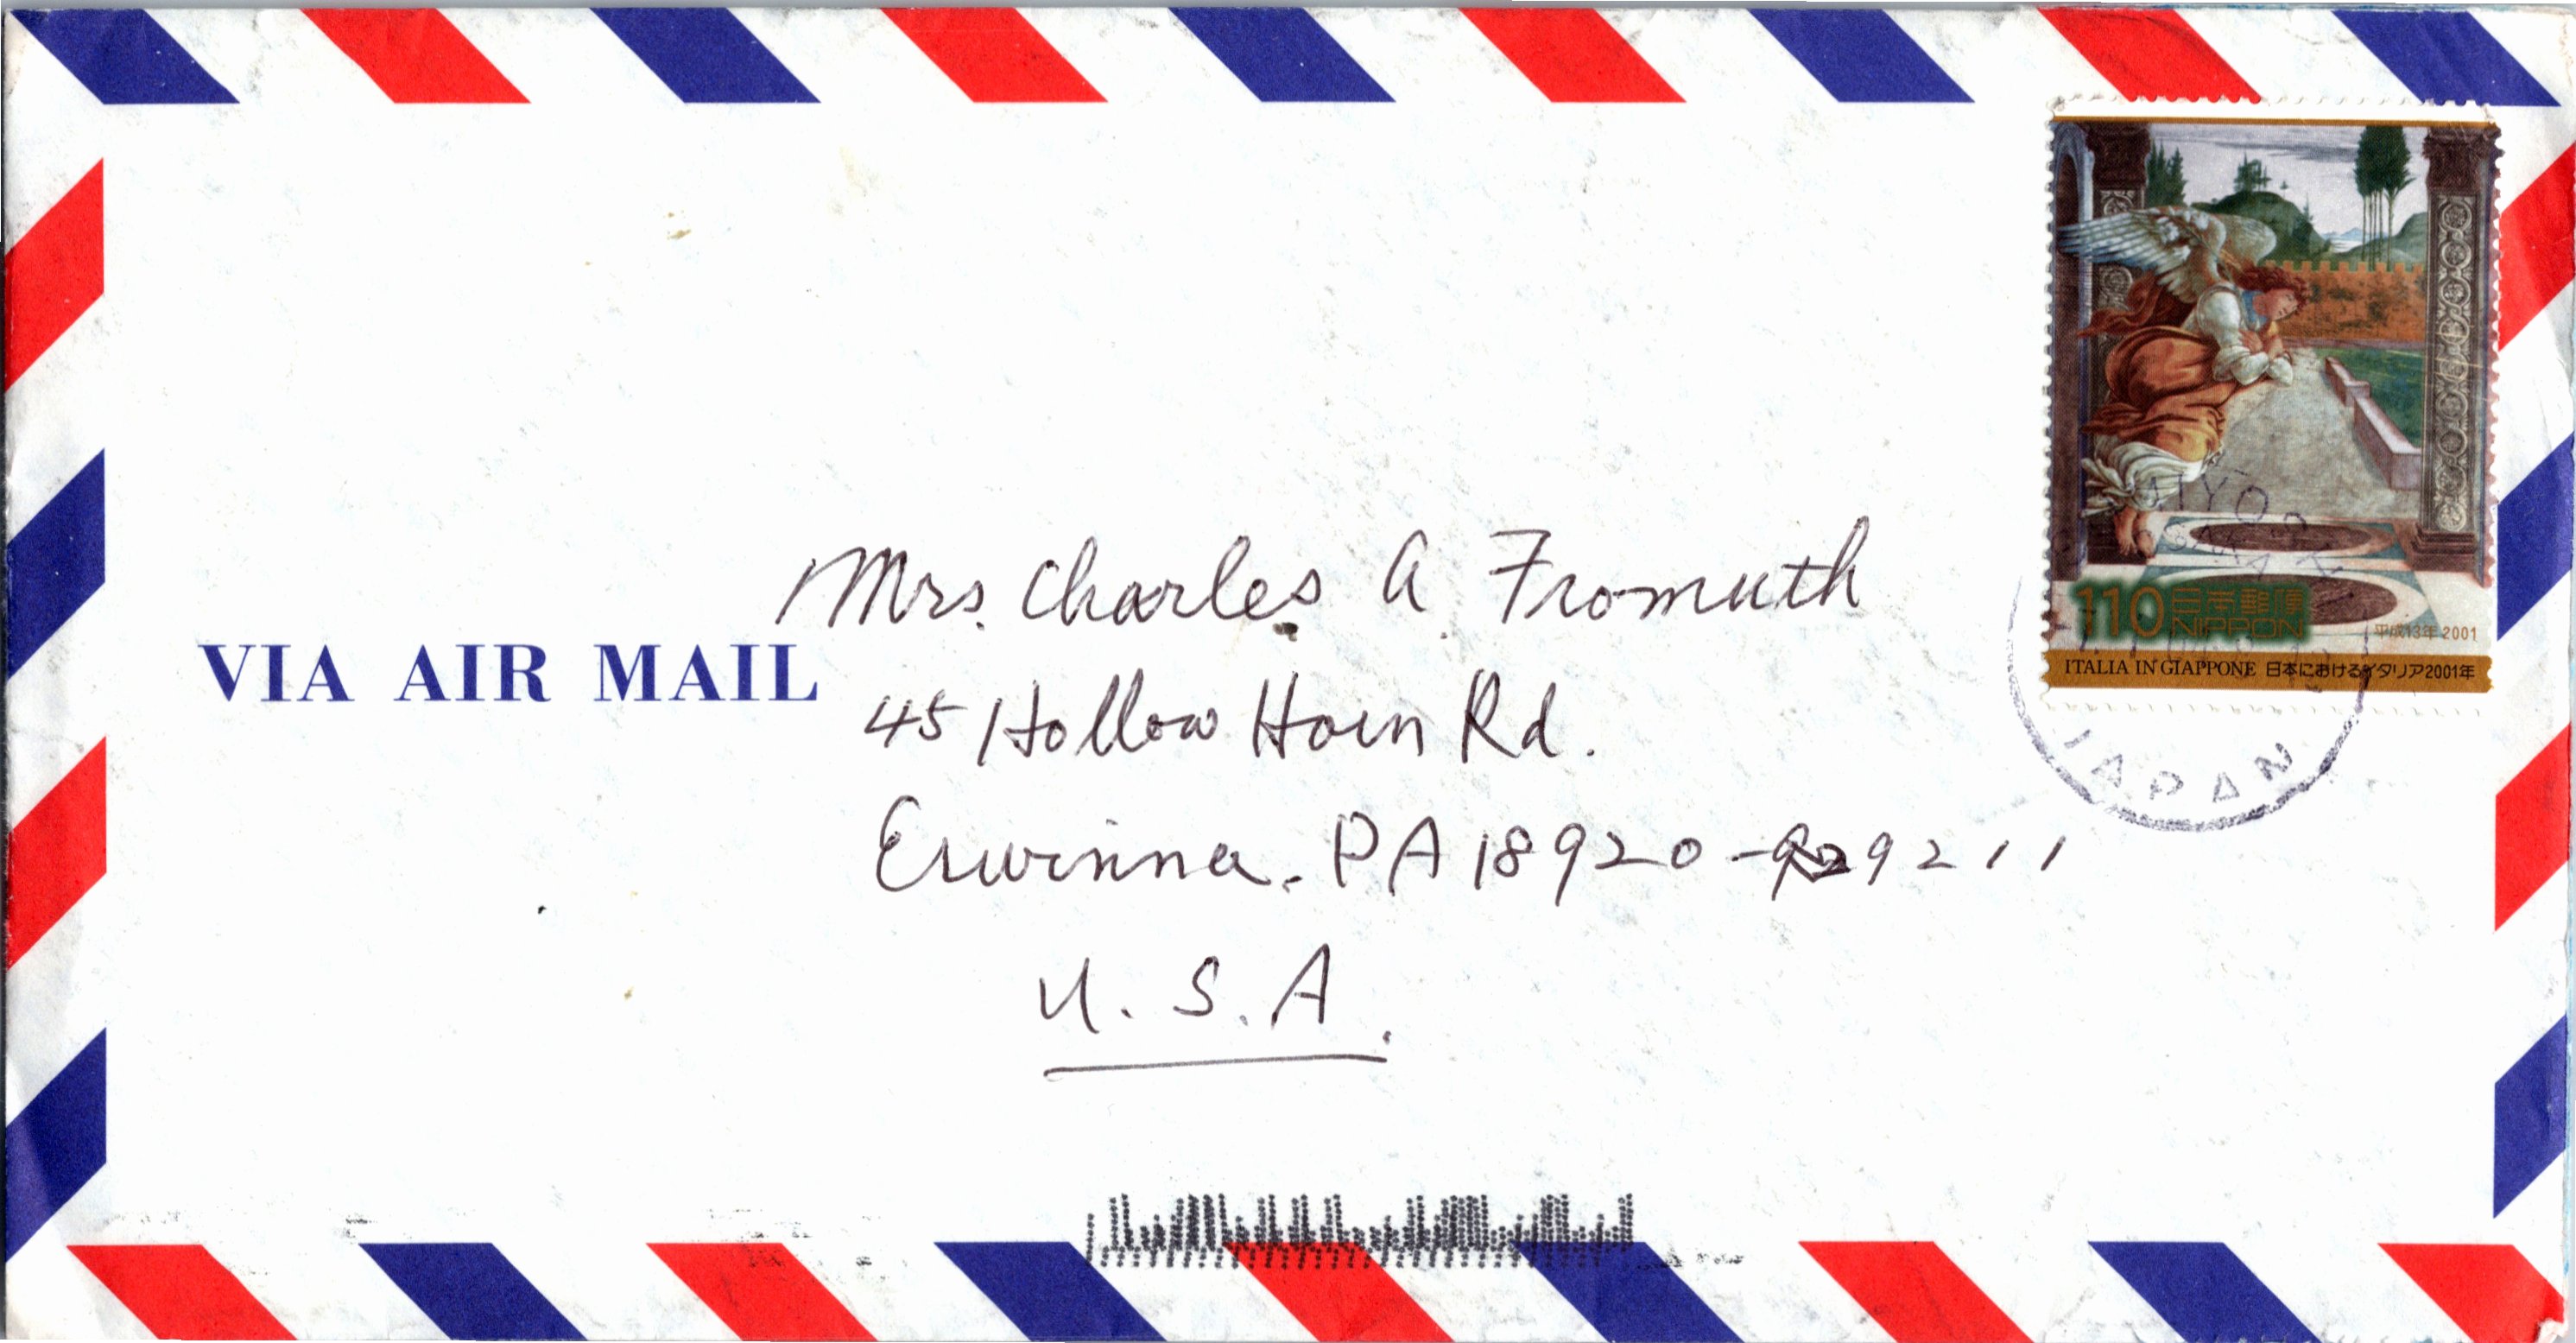 VIA AIR MAIL
Mrs. Charles A. Fromuth
45 Hollow Horn Rd.
Erwinna, PA 18920-9211
U.S.A.
110 日本郵便
NIPPON
平成13年 2001
ITALIA IN GIAPPONE 日本におけるイタリア2001年
JAPAN